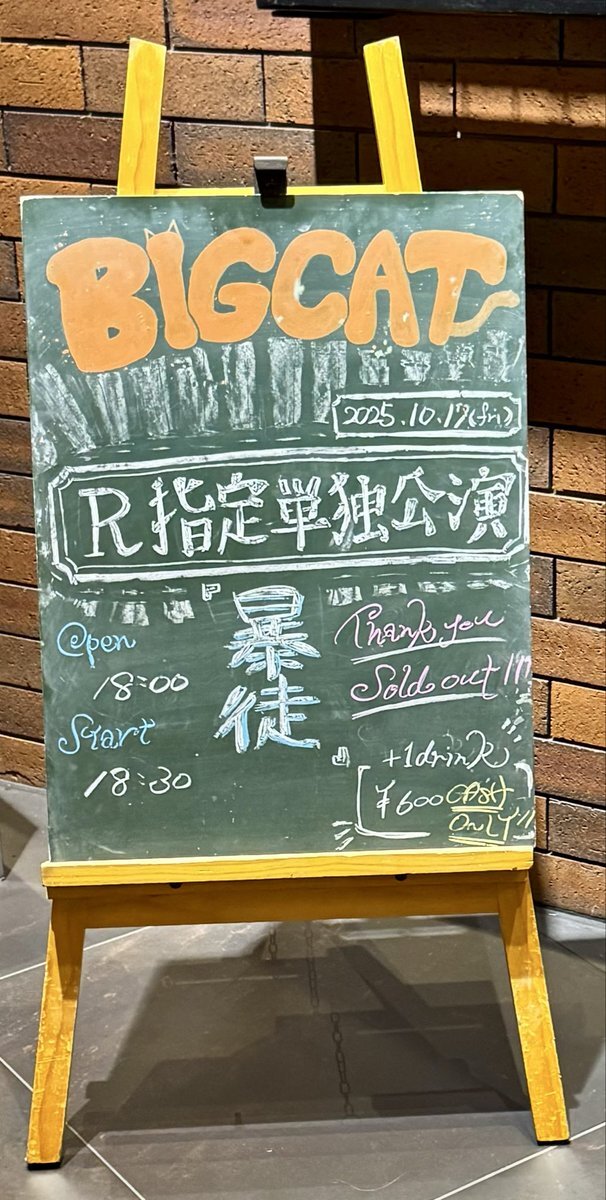 BIGCAT
2025.10.17(fri)
R指定単独公演
『暴徒』
Open
18:00
Start
18:30
Thank you
Sold out!!!
+1drink
¥600 CASH
ONLY!!